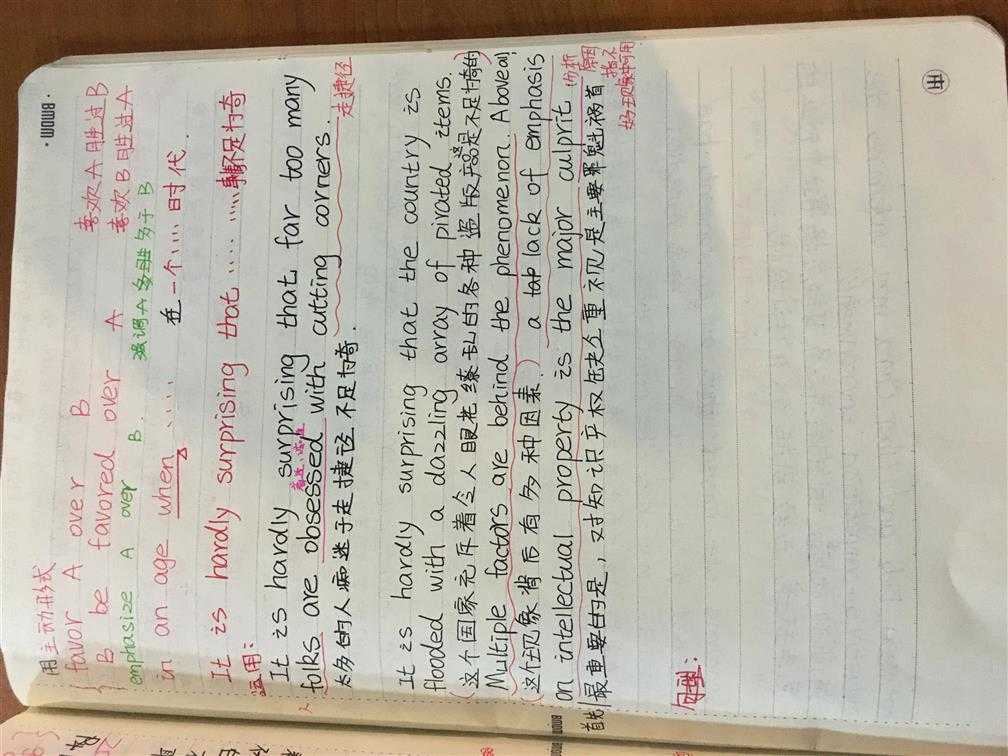 用主动形式
favor A over B 喜欢A胜过B
B be favored over A 喜欢B胜过A
emphasize A over B. 强调A多于B
in an age when ..... 在一个....时代
It is hardly surprising that ......不足为奇
运用:
It is hardly surprising that far too many
着迷,
folks are obsessed with cutting corners.
走捷径
太多的人痴迷于走捷径不足为奇.
It is hardly surprising that the country is
flooded with a dazzling array of pirated items.
(这个国家充斥着令人眼花缭乱的各种盗版产品这是不足为奇的)
Multiple factors are behind the phenomenon. Above all,
(这个现象背后有多种因素.) a lack of emphasis
on intellectual property is the major culprit 分析原因
首先/最重要的是,对知识产权缺乏重视是主要罪魁祸首
句型:
BMDM
BMDM